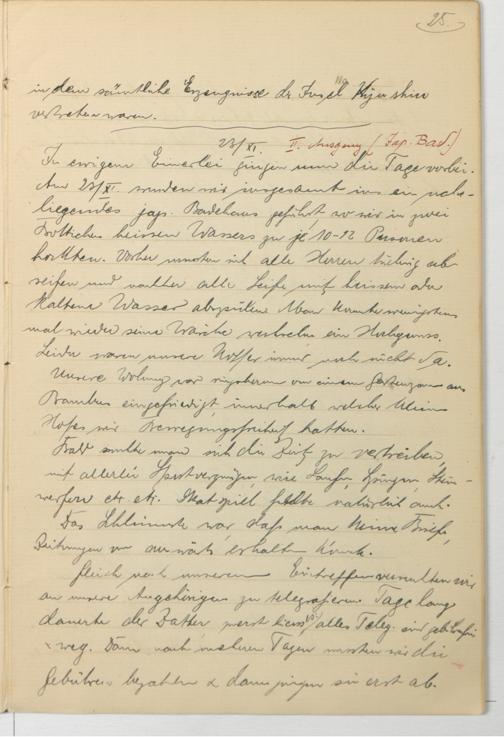 25.
in dem sämtliche Erzeugnisse der Insel Kyushiu
vertreten waren.
23/XI. II. Ausgang (Jap. Bad.)
In ewigem Einerlei gingen nun die Tage vorbei.
Am 23/XI wurden wir insgesamt in ein nahe-
liegendes jap. Badehaus geführt, wo wir in zwei
Bottichen heissen Wassers zu je 10-12 Personen
hockten. Vorher mussten sich alle Herren tüchtig ab-
seifen und nachher alle Seife mit heissem oder
kaltem Wasser abspülen. Man konnte wenigstens
mal wieder seine Wäsche wechseln ein Hochgenuss.
Leider waren unsere Koffer immer noch nicht da.
Unsere Wohnung war rings herum von einem aus
Bambus eingefriedigt, innerhalb welcher kleinen
Hofes wir Bewegungsfreiheit hatten.
Bald suchte man sich die Zeit zu vertreiben
mit allerlei Sportvergnügen, wie Laufen, Springen, Stein-
werfen etc. etc. Skatspiel fehlte natürlich auch.
Das Schlimmste war, dass man keine Briefe,
Zeitungen von auswärts erhalten konnte.
Gleich nach unserem Eintreffen versuchten wir
an unsere Angehörigen zu telegrafieren. Tage lang
dauerte die erst hiess es, alles Teleg. sind gebührenfrei
weg. Dann nach mehreren Tagen mussten wir die
Gebühren bezahlen & dann gingen sie erst ab.